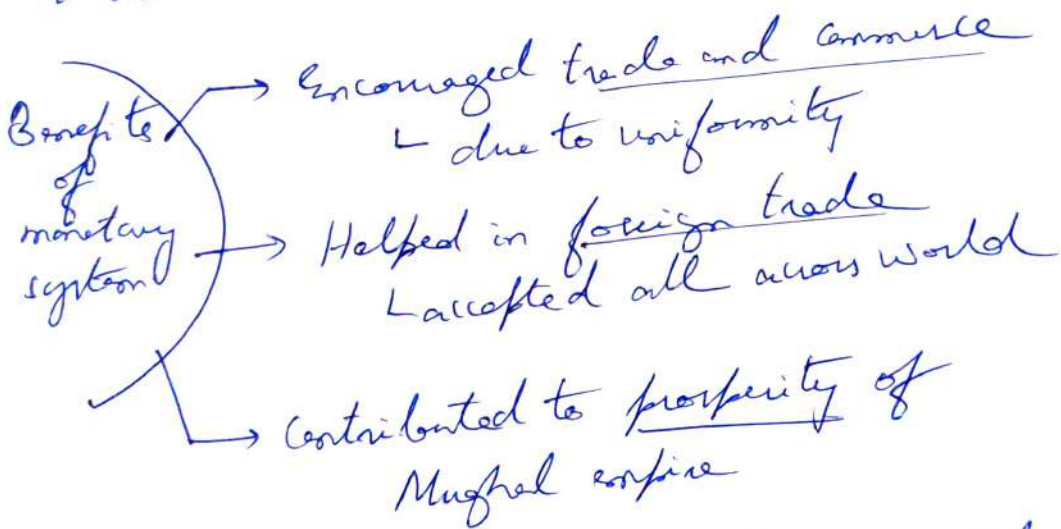 Benefits
of
monetary
system
→ Encouraged trade and commerce
└ due to uniformity
→ Helped in foreign trade
└ accepted all across world
→ Contributed to prosperity of
Mughal empire